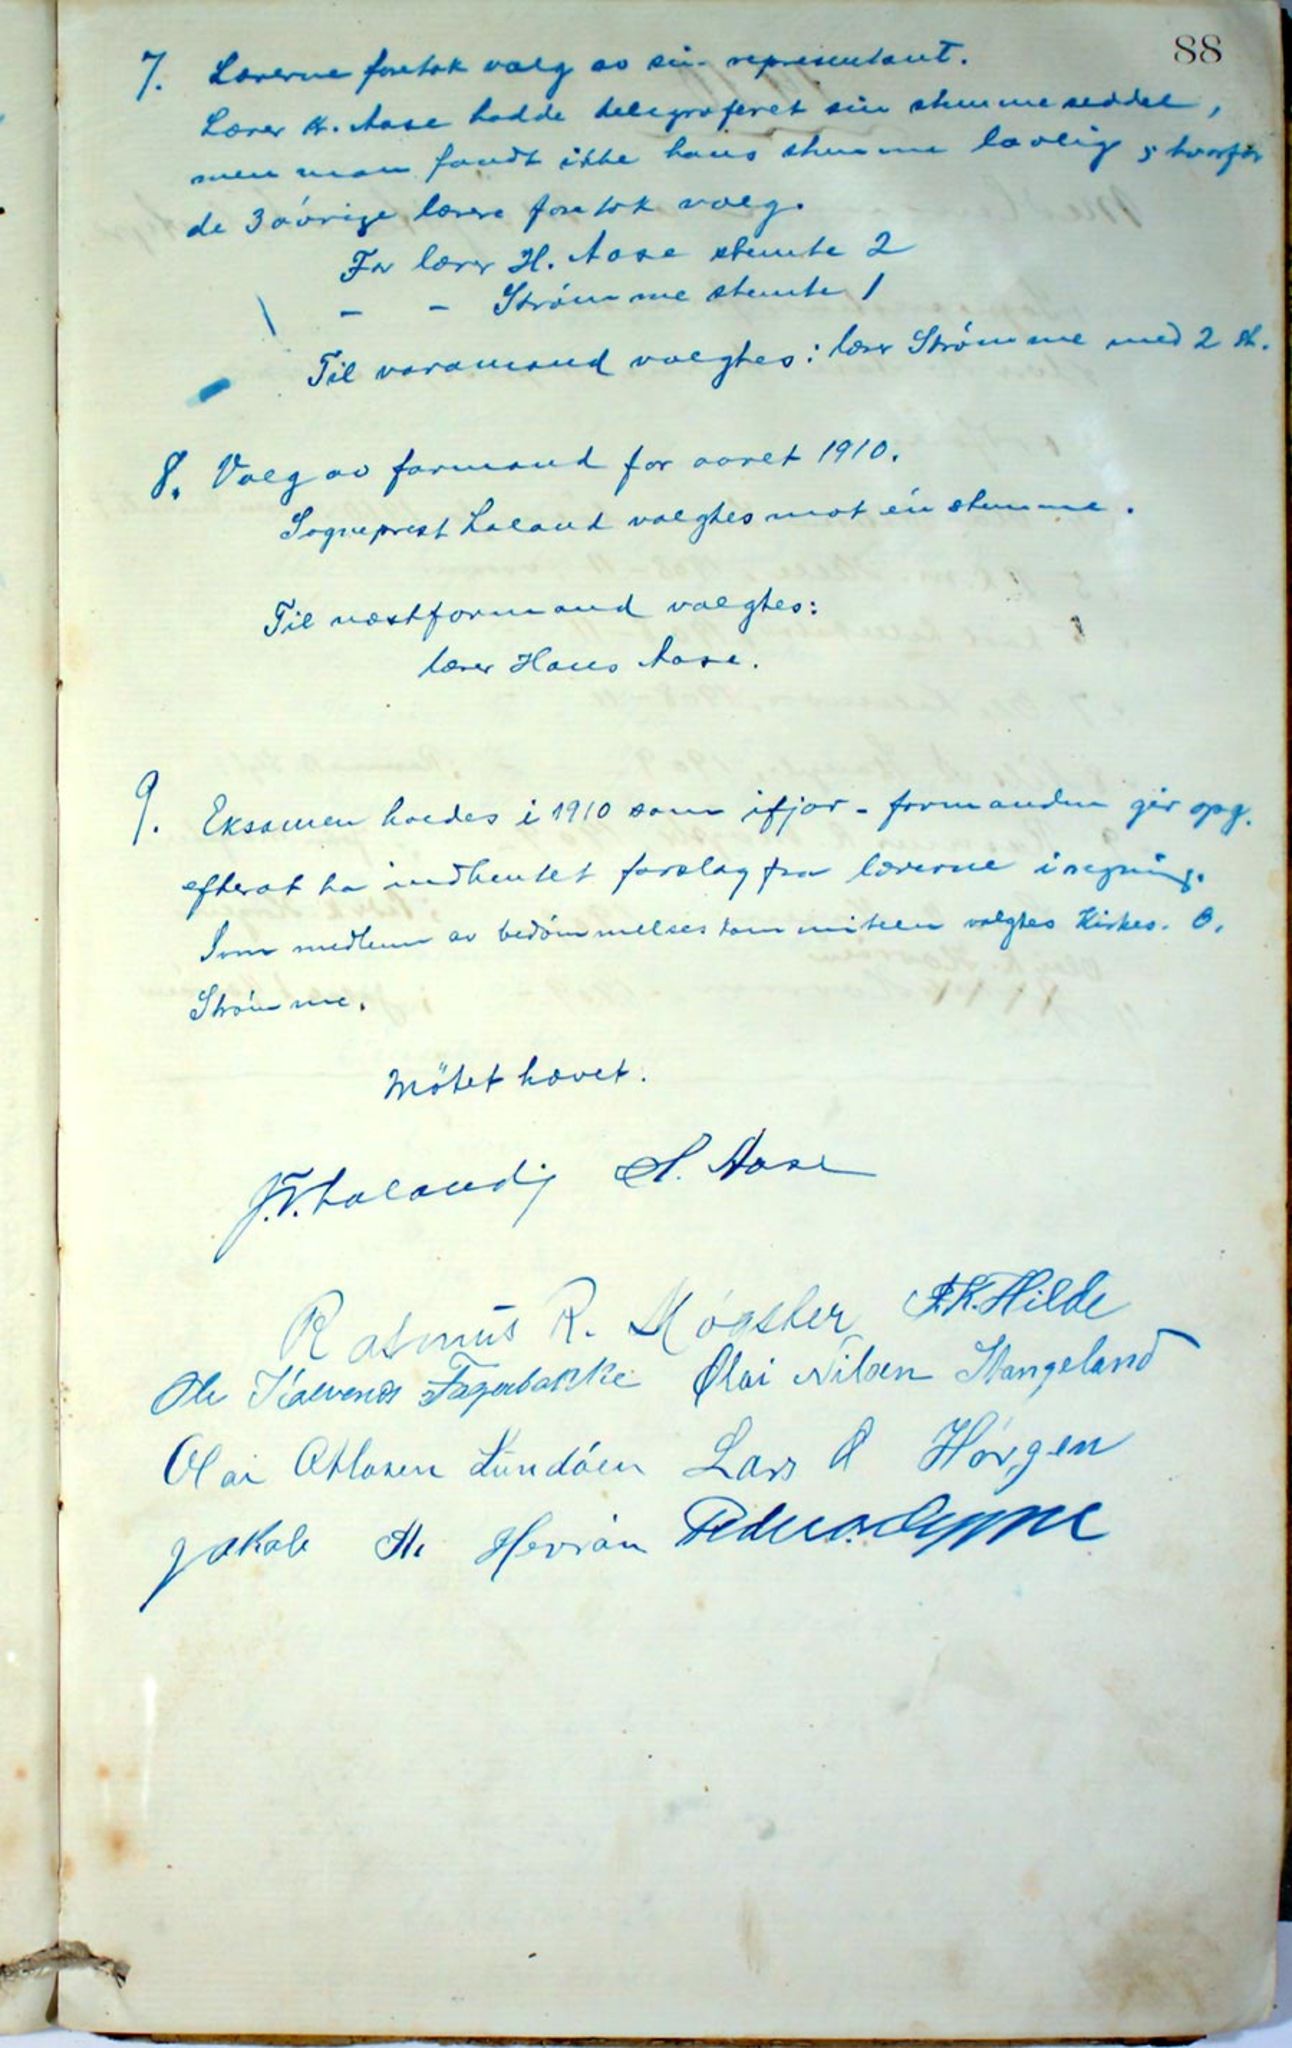 88
7. Lærerne foretok valg av sin representant.
Lærer K. Aase hadde telegraferet sin stemmeseddel,
men man fandt ikke hans stemme lovlig, hvorfor
de 3 øvrige lærere foretok valg.
For lærer H. Aase stemte 2
- - Strømme stemte 1
Til varamand valgtes: lærer Strømme med 2 st.
8. Valg av formand for aaret 1910.
Sogneprest Laland valgtes mot én stemme.
Til næstformand valgtes:
lærer Hans Aase.
9. Eksamen holdes i 1910 som ifjor - formanden gir opg.
efterat ha indhentet forslag fra lærerne i regning.
Som medlem av bedømmelseskommiteen valgtes Kirkes. O.
Strømme.
Møtet hævet.
J. V. Laland H. Aase
Rasmus R. Møgster K. Hilde
Ole Fagerbakke Olai Nilsen Stangeland
Olai Lundøen Lars O Horgen
Jakob